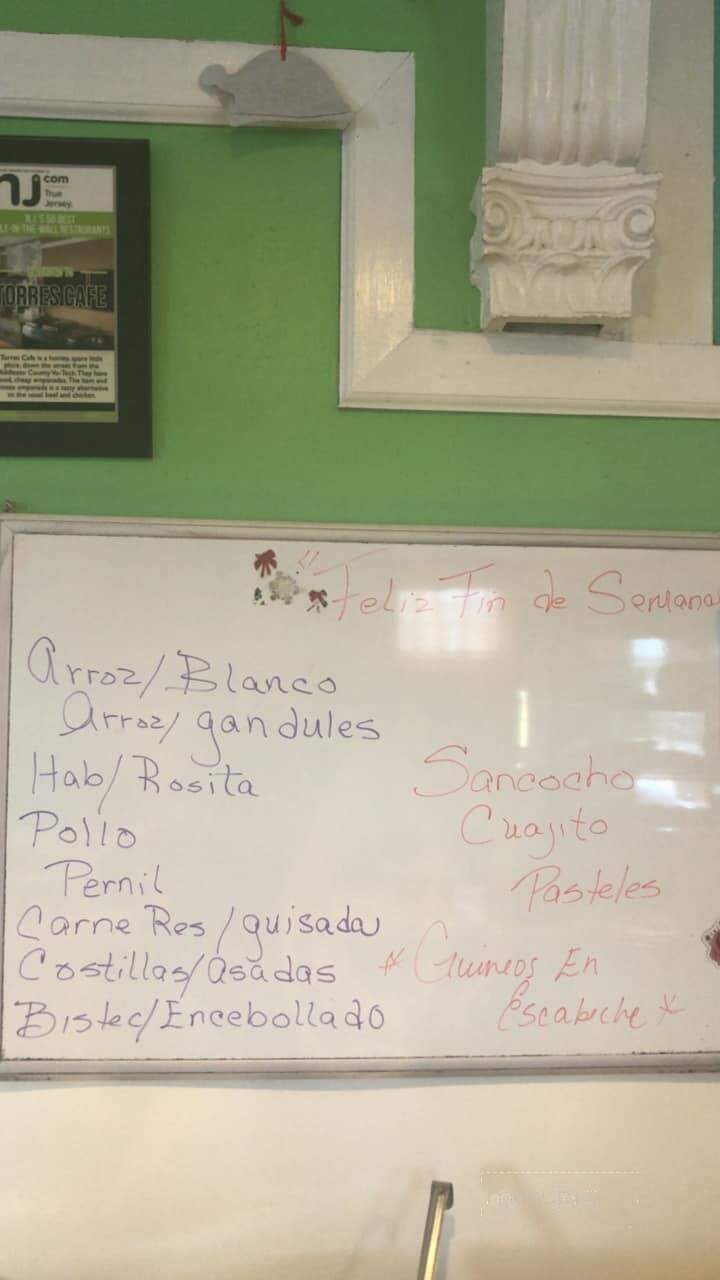 nj.com
True
Jersey.
N.J.'S 50 BEST
LE-IN-THE-WALL RESTAURANTS
TORRES CAFE
Torres Cafe is a homey, spare little
place, down the street from the
County Vo-Tech. They have
cheap empanadas. The ham and
cheese empanada is a tasty alternative
to the usual beef and chicken.
"Feliz Fin de Semana
Arroz/Blanco
Arroz/gandules
Hab/Rosita
Pollo
Pernil
Carne Res/guisada
Costillas/asadas
Bistec/Encebollado
Sancocho
Cuajito
Pasteles
*Guineos En
Escabeche*